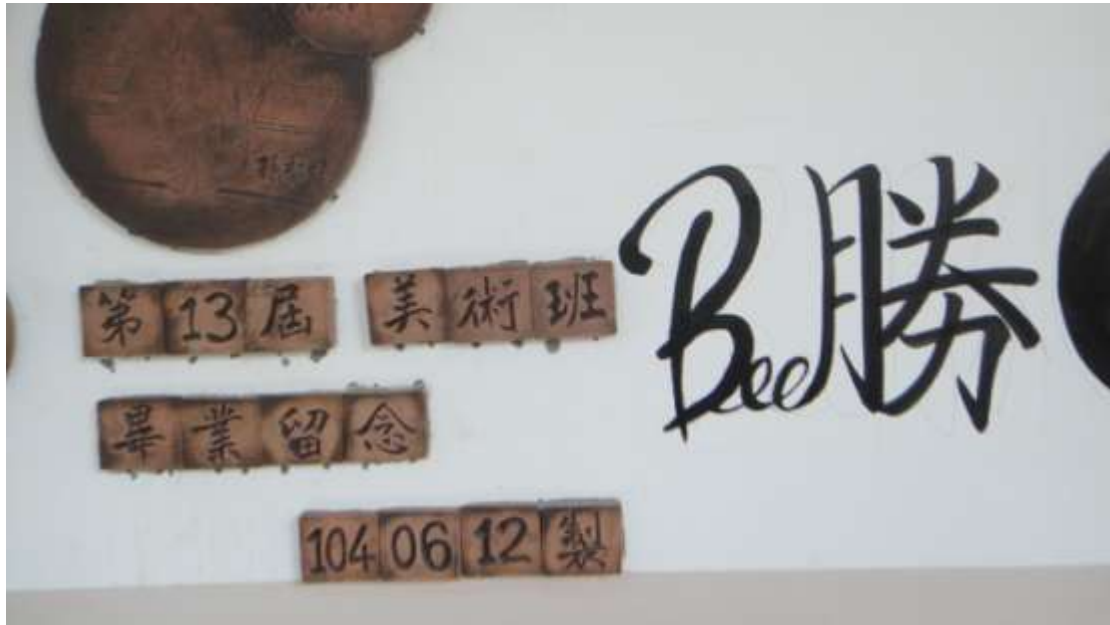 第13屆 美術班
畢業留念
104 06 12 製
Bee勝